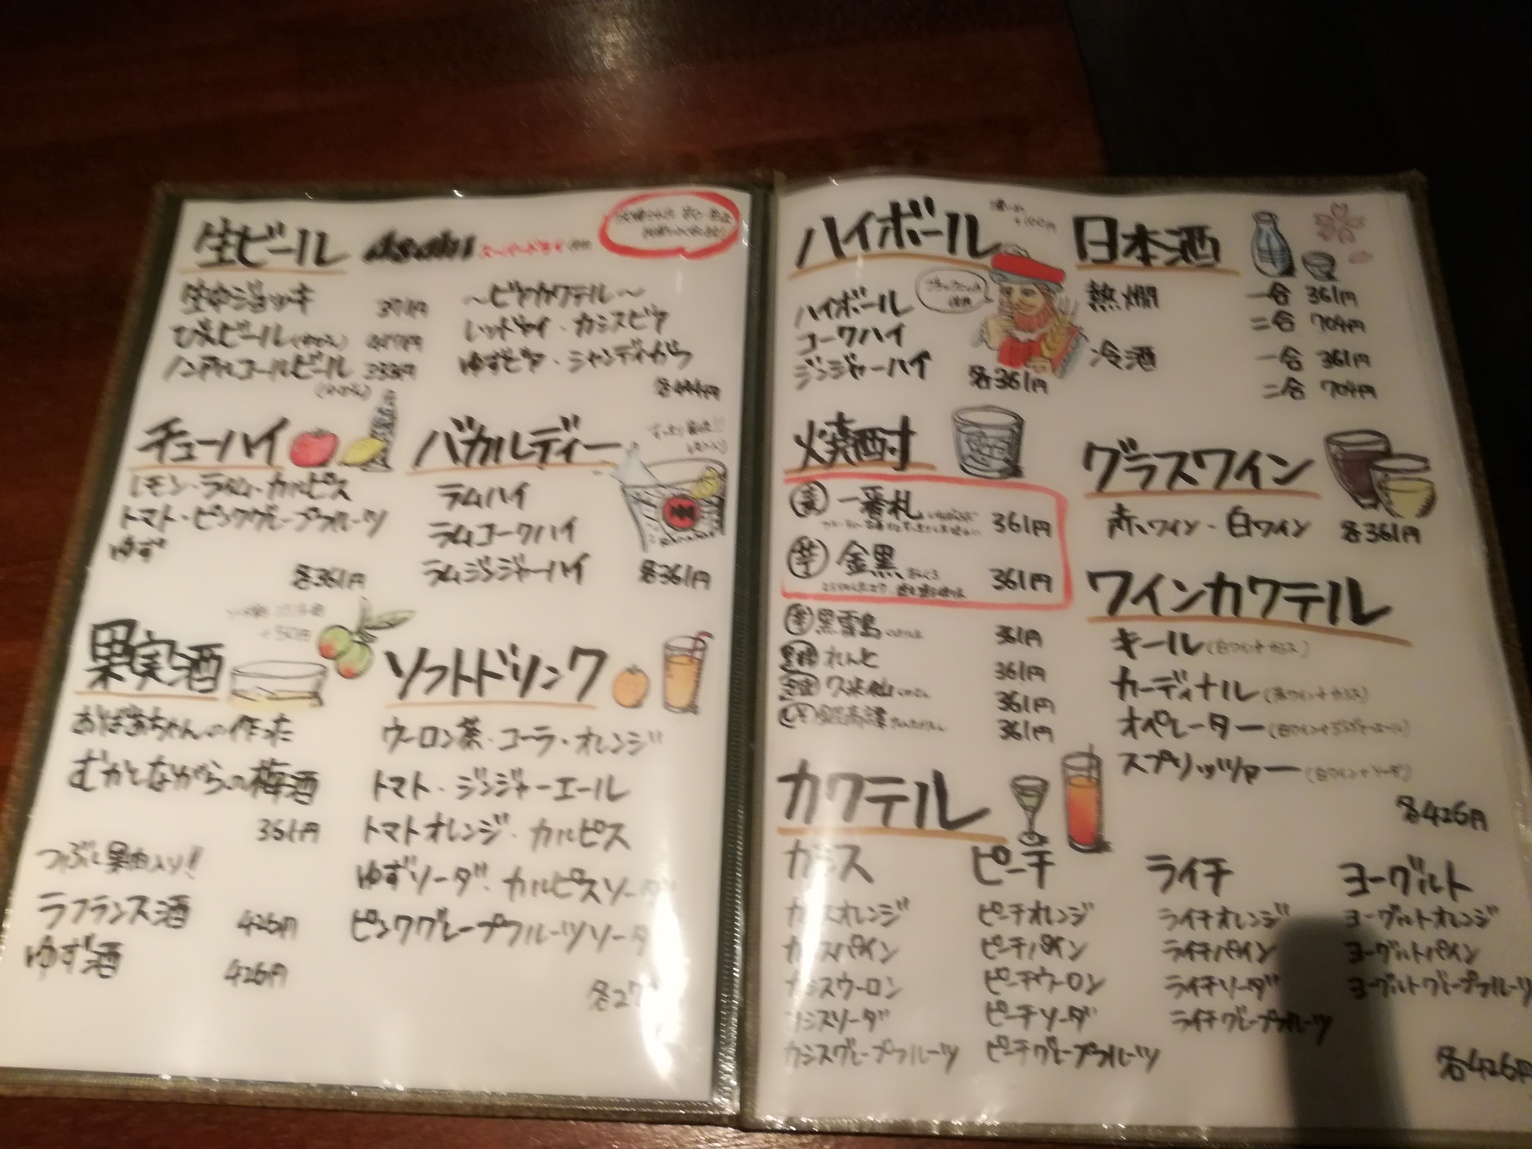 生ビール Asahi スーパードライ
生中ジョッキ 371円
びんビール 417円
ノンアルコールビール 333円
～ビヤカクテル～
レッドアイ・カシスビア
ゆずビア・シャンディガフ
各444円
チューハイ
レモン・ライム・カルピス
トマト・ピンクグレープフルーツ
ゆず
各361円
バカルディー
ラムハイ
ラムコークハイ
ラムジンジャーハイ 各361円
果実酒
+50円
おばあちゃんの作った
むかしながらの梅酒
361円
つぶし果肉入り!!
ラフランス酒 426円
ゆず酒 426円
ソフトドリンク
ウーロン茶・コーラ・オレンジ
トマト・ジンジャーエール
トマトオレンジ・カルピス
ゆずソーダ・カルピスソーダ
ピンクグレープフルーツソーダ
各27
ハイボール
濃いめ
+100円
ハイボール
コークハイ
ジンジャーハイ 各361円
日本酒
熱燗 一合 361円
二合 704円
冷酒 一合 361円
二合 704円
焼酎
麦 一番札 361円
芋 金黒 361円
黒霧島 361円
れんと 361円
久米仙 361円
361円
グラスワイン
赤ワイン・白ワイン 各361円
ワインカクテル
キール (白ワイン+カシス)
カーディナル (赤ワイン+カシス)
オペレーター (白ワイン+ジンジャーエール)
スプリッツァー (白ワイン+ソーダ)
各426円
カクテル
カシス
カシスオレンジ
カシスパイン
カシスウーロン
カシスソーダ
カシスグレープフルーツ
ピーチ
ピーチオレンジ
ピーチパイン
ピーチウーロン
ピーチソーダ
ピーチグレープフルーツ
ライチ
ライチオレンジ
ライチパイン
ライチソーダ
ライチグレープフルーツ
ヨーグルト
ヨーグルトオレンジ
ヨーグルトパイン
ヨーグルトグレープフルーツ
各426円